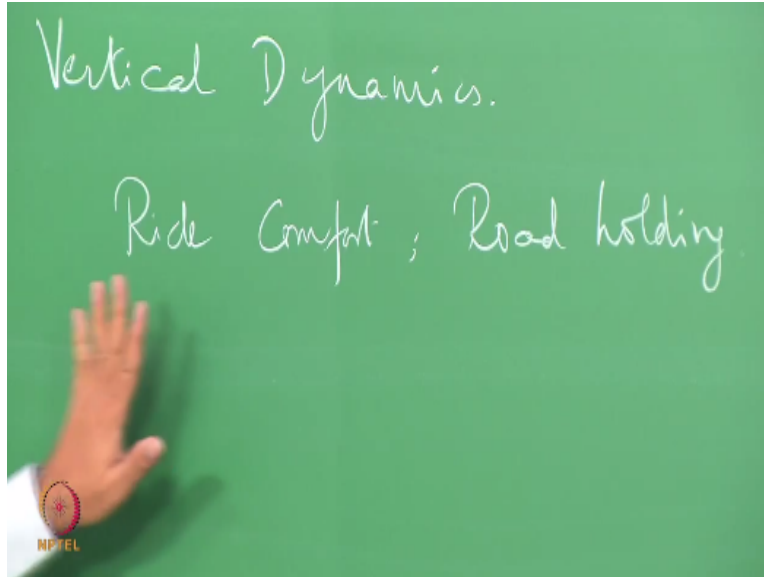 Vertical Dynamics.
Ride Comfort ; Road holding
NPTEL